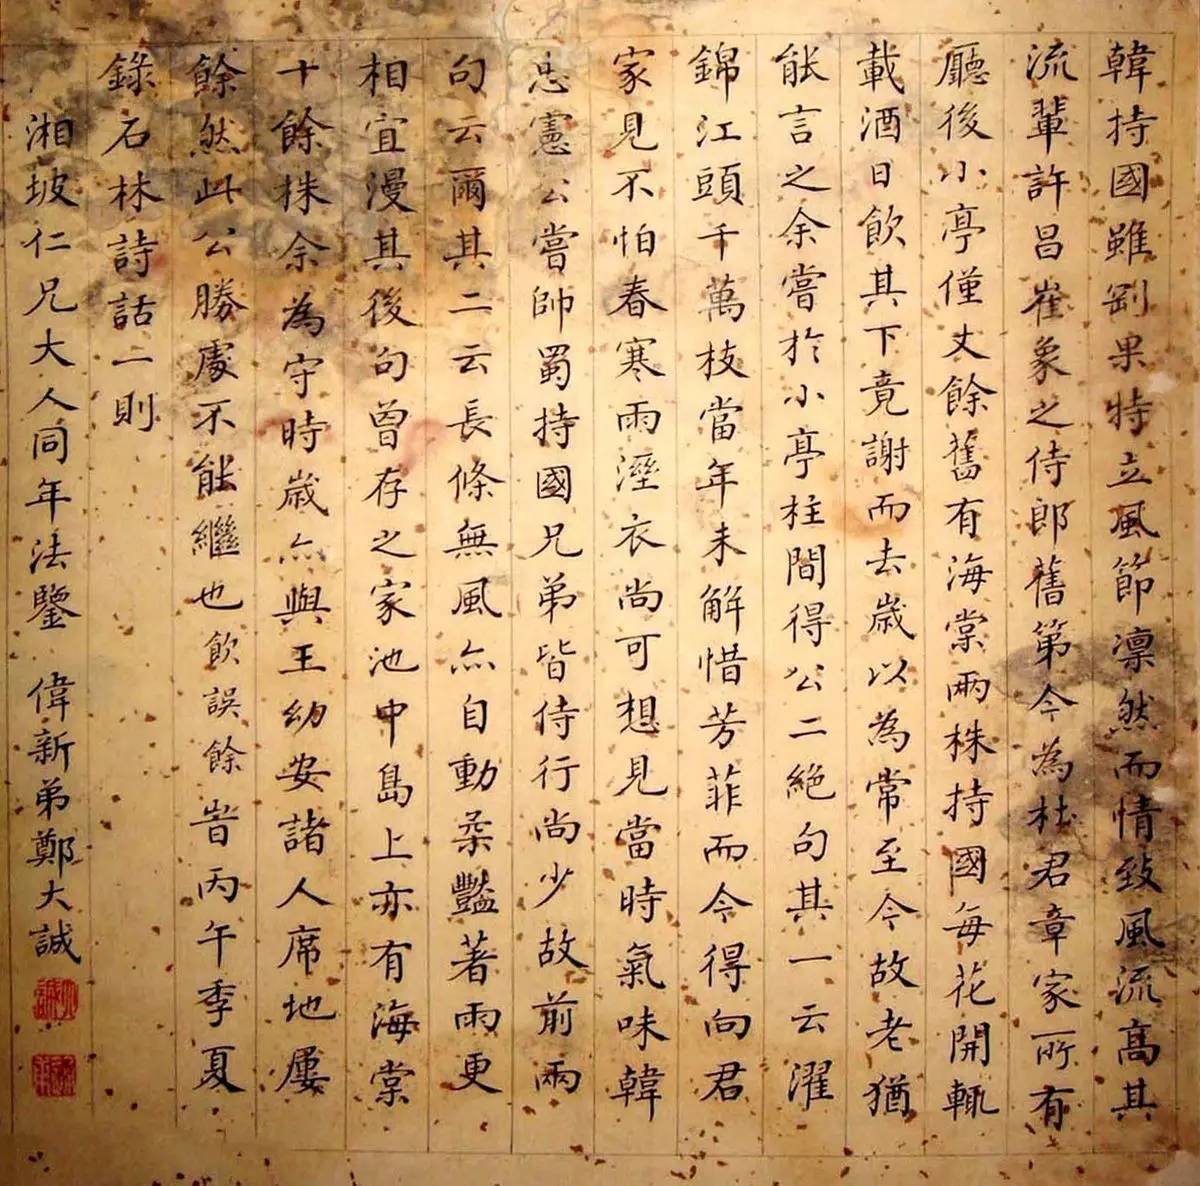 韓持國雖剛果特立風節凛然而情致風流高其
流輩許昌崔象之侍郎舊第今為杜君章家所有
廳後小亭僅丈餘舊有海棠兩株持國每花開輒
載酒日飲其下竟謝而去歲以為常至今故老猶
能言之余嘗於小亭柱間得公二絕句其一云濯
錦江頭千萬枝當年未解惜芳菲而今得向君
家見不怕春寒雨溼衣尚可想見當時氣味韓
忠憲公嘗帥蜀持國兄弟皆侍行尚少故前兩
句云爾其二云長條無風亦自動柔豔著雨更
相宜漫其後句曾存之家池中島上亦有海棠
十餘株余為守時歲亦與王幼安諸人席地屢
飲然此公勝處不能繼也飲誤餘旹丙午季夏
錄石林詩話一則
湘坡仁兄大人同年法鑒 偉新弟鄭大誠